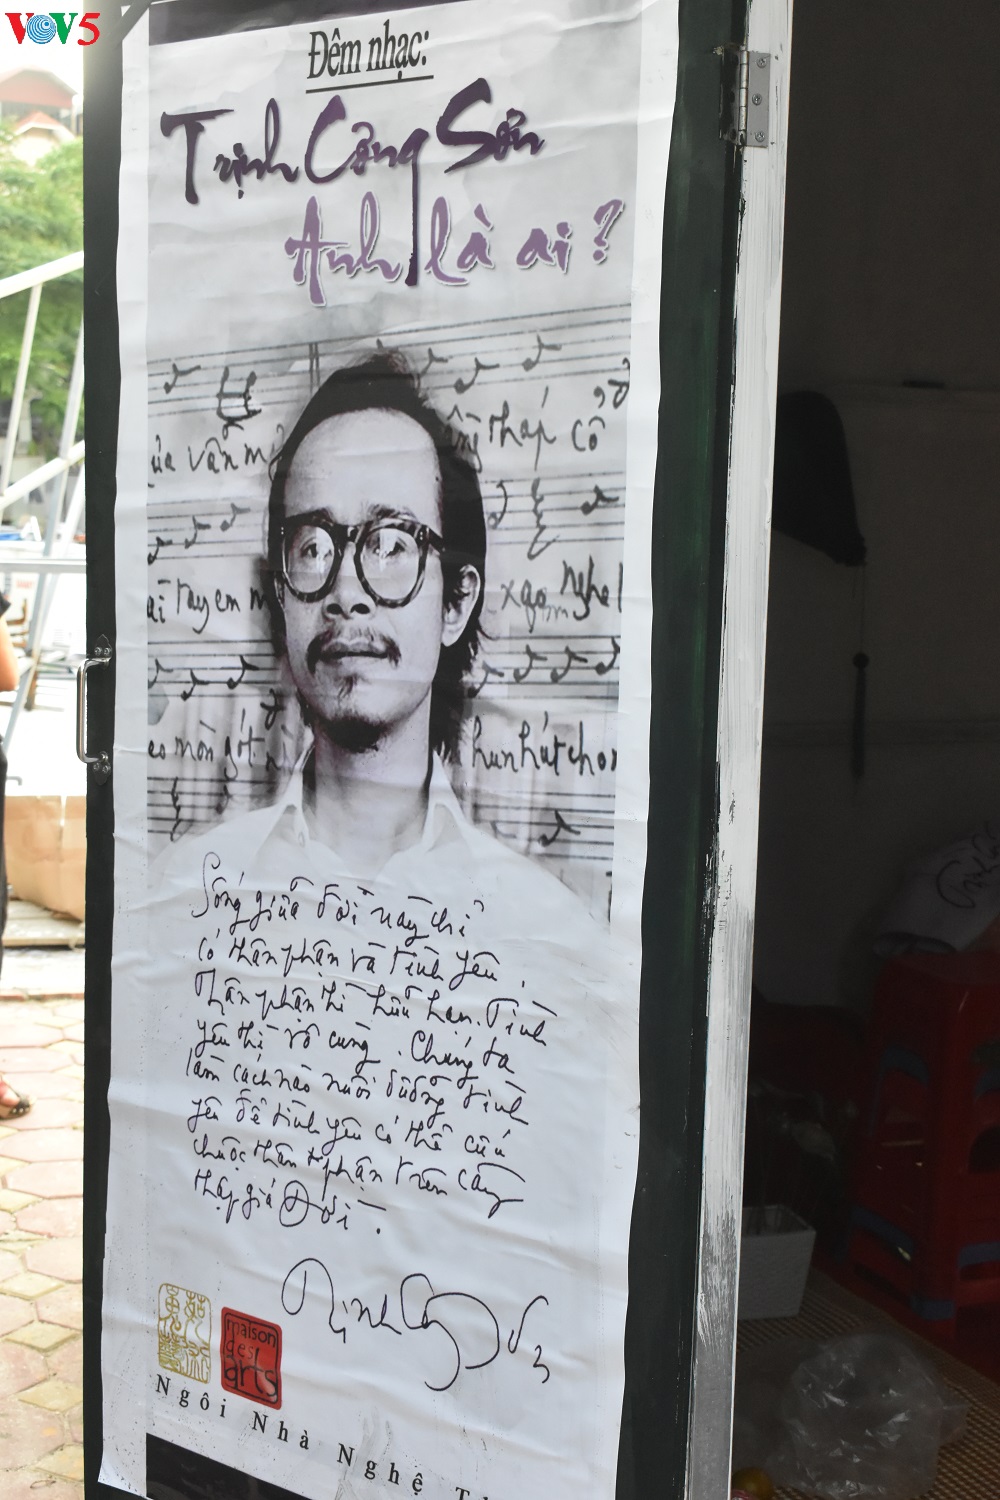 VOV5
Đêm nhạc:
Trịnh Công Sơn
Anh là ai?
ủa vẫn m
tháp cổ
ài tay em m
xạc
nghe
eo mòn gót
hun hút cho
Sống giữa đời này chỉ
có thân phận và tình yêu.
Thân phận thì hữu hạn. Tình
yêu thì vô cùng. Chúng ta
làm cách nào nuôi dưỡng tình
yêu để tình yêu có thể cứu
chuộc thân phận trên cây
thập giá Đời.
Trịnh Công Sơn
maison
des
arts
Ngôi Nhà Nghệ T